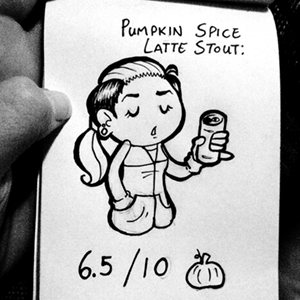 Pumpkin Spice
Latte Stout:
6.5/10